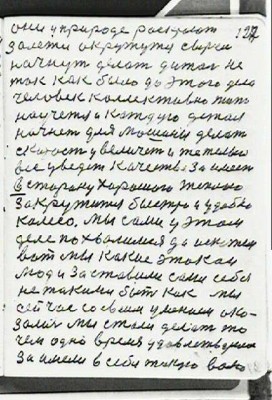 они у природе раскроют 127
заметя окружутся сверху
начнут делат дитол не
так как было до этого дела
человек коллективно
научится и каждую детал
начнет для машины делат
скорост увеличет и
все уведет качество заимеет
в сторону хорошого
закружится быстро и удобно
колесо. мы сами у этом
деле похвалимся до
вот мы какие этакаи
люди заставили сами себя
не такими быт как мы
сейчас со своим умением ока-
зались мы стали делат то
чем одно время удовлетворили
заимели в себе такую